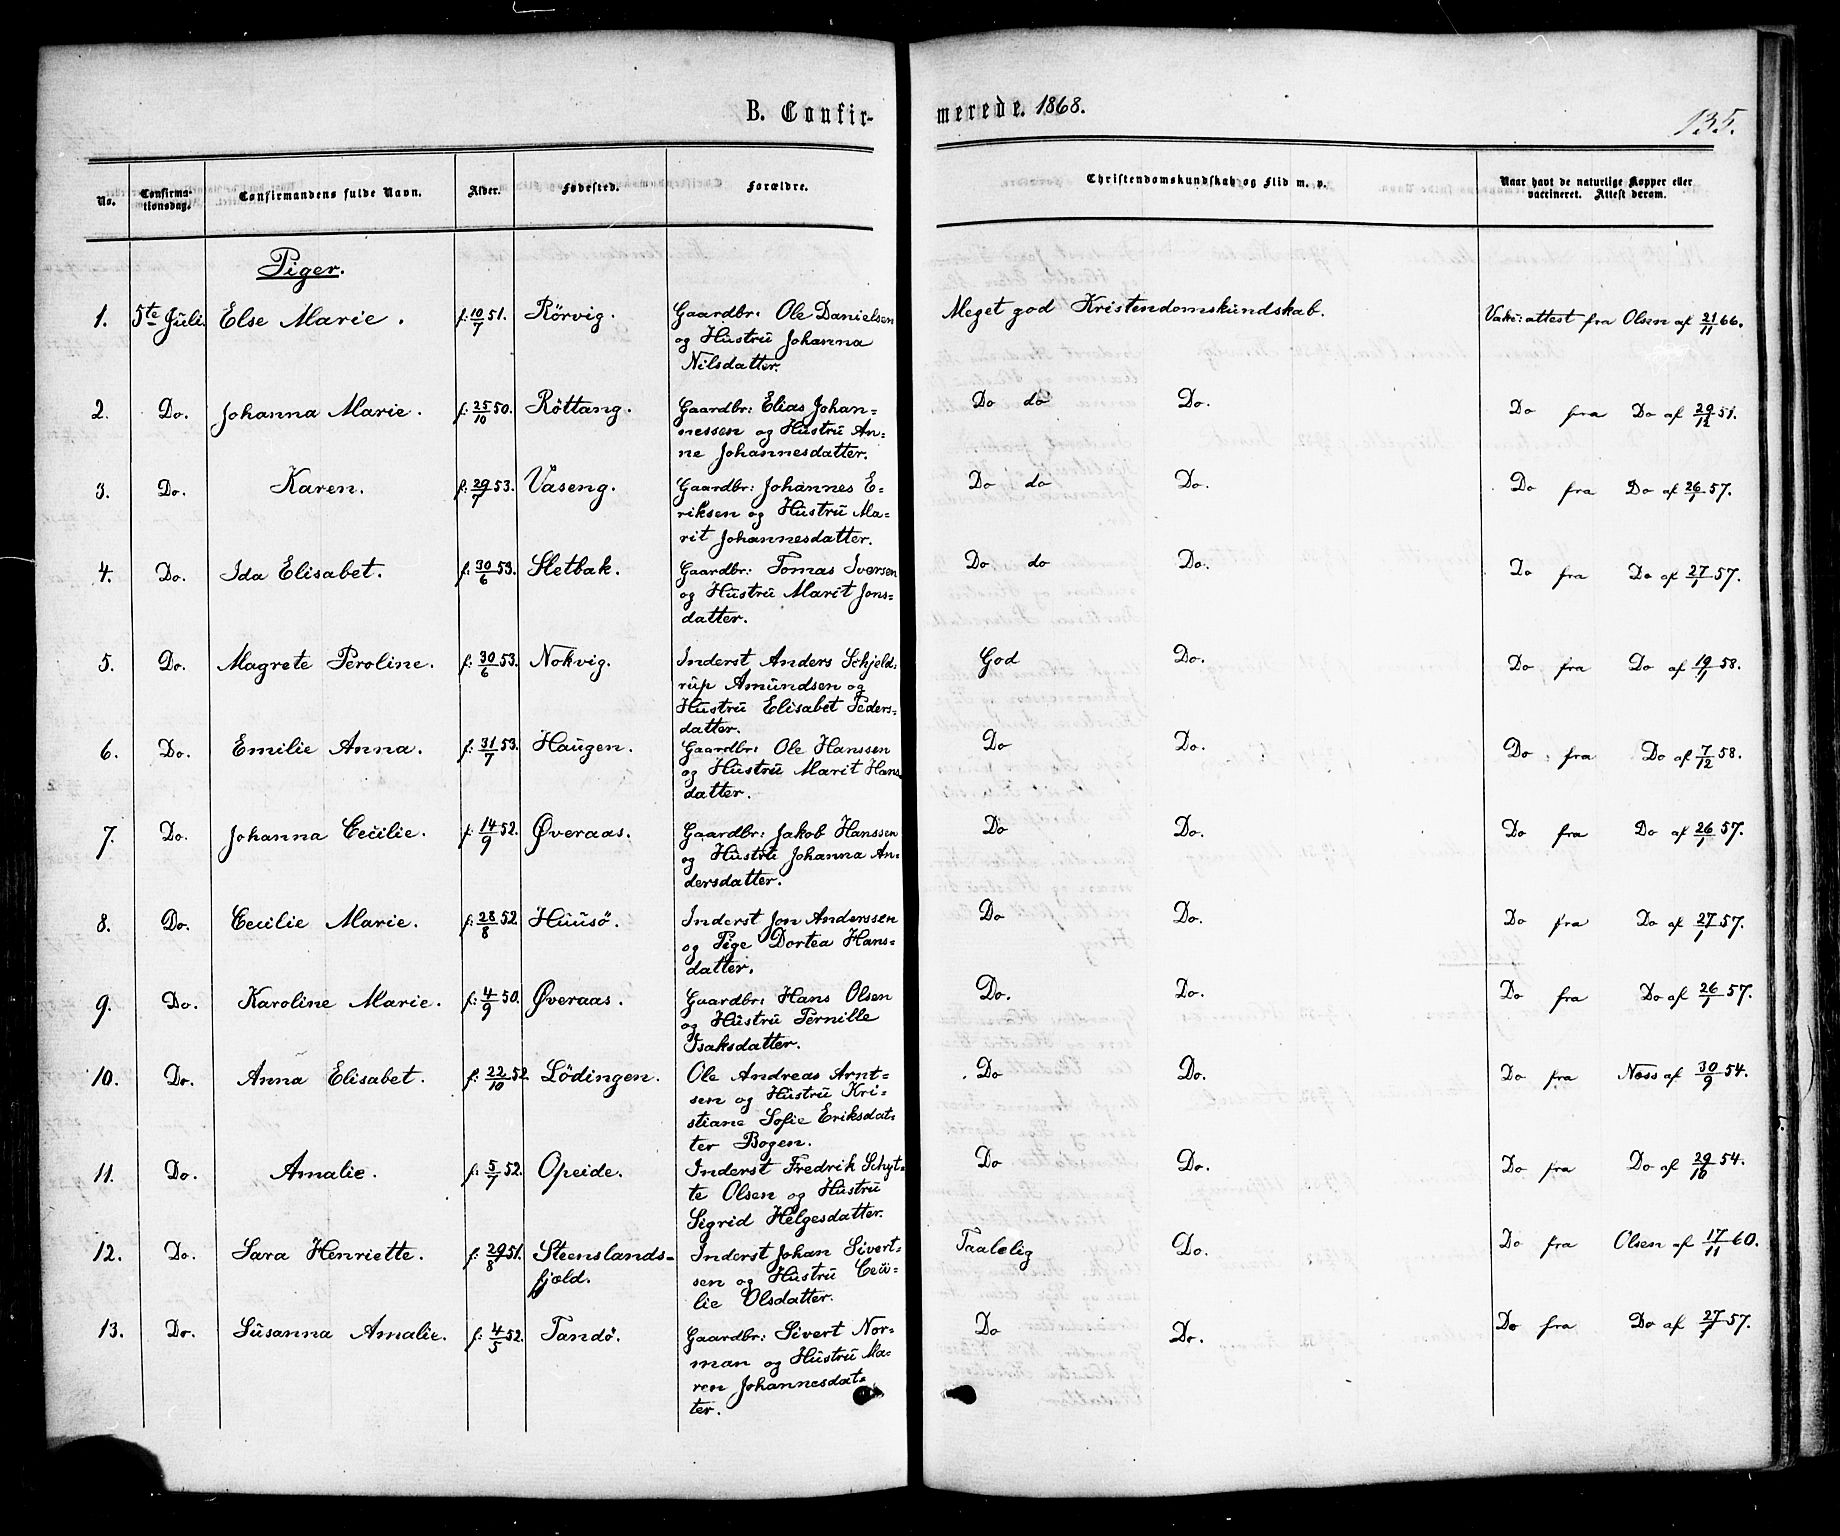 B. Confirmerede. 1868.
135.
No. Confirmationsdag. Confirmandens fulde Navn. Alder. Fødested. Forældre. Christendomskundskab og Flid m. v. Naar havt de naturlige Kopper eller vaccineret. Attest derom.
Piger.
1. 5te Juli. Else Marie. f: 10/7 51. Rörvig. Gaardbr: Ole Danielsen Meget god Kristendomskundskab. Vakc: attest fra Olsen af 21/11 66.
og Hustru Johanna
Nilsdatter.
2. Do. Johanna Marie. f: 25/10 50. Röttang. Gaardbr: Elias Johan= Do do Do. Do fra Do af 29/12 51.
nessen og Hustru An=
ne Johannesdatter.
3. Do. Karen. f: 29/7 53. Vaseng. Gaardbr: Johannes E= Do do Do. Do fra Do af 26/1 57.
riksen og Hustru Ma=
rit Johannesdatter.
4. Do. Ida Elisabet. f: 30/6 53. Sletbak. Gaardbr: Tomas Iversen Do do Do. Do fra Do af 27/1 57.
og Hustru Marit Jons=
datter.
5. Do. Magrete Peroline. f: 30/6 53. Nokvig. Inderst Anders Schjeld= God Do. Do fra Do af 19/1 58.
rup Amundsen og
Hustru Elisabet Peders=
datter.
6. Do. Emilie Anna. f: 31/7 53. Haugen. Gaardbr: Ole Hanssen Do Do. Do fra Do af 7/12 58.
og Hustru Marit Hans
datter.
7. Do. Johanna Cecilie. f: 14/9 52. Øveraas. Gaardbr: Jakob Hanssen Do Do. Do fra Do af 26/1 57.
og Hustru Johanna An=
dersdatter.
8. Do. Cecilie Marie. f: 28/8 52. Huusö. Inderst Jon Anderssen Do Do. Do fra Do af 27/1 57.
og Pige Dortea Hans=
datter.
9. Do. Karoline Marie. f: 4/9 50. Øveraas. Gaardbr: Hans Olsen Do. Do. Do fra Do af 26/1 57.
og Hustru Pernille
Isaksdatter.
10. Do. Anna Elisabet. f: 22/10 52. Lödingen. Ole Andreas Arnt= Do Do. Do fra Næss af 30/9 54.
sen og Hustru Kri=
stiane Sofie Eriksdat=
ter Bogen.
11. Do. Amalie. f: 5/7 52. Opeide. Inderst Fredrik Schyt= Do Do. Do fra Do af 29/10 54.
te Olsen og Hustru
Sigrid Helgesdatter.
12. Do. Sara Henriette. f: 29/8 51. Steenslands= Inderst Johan Sivert= Taalelig Do. Do fra Olsen af 17/11 60.
fjeld. sen og Hustru Ceci=
lie Olsdatter.
13. Do. Susanna Amalie. f: 4/5 52. Tandö. Gaardbr: Sivert Nor= Do Do. Do fra Do af 27/1 57.
man og Hustru Ma=
ren Johannesdat=
ter.